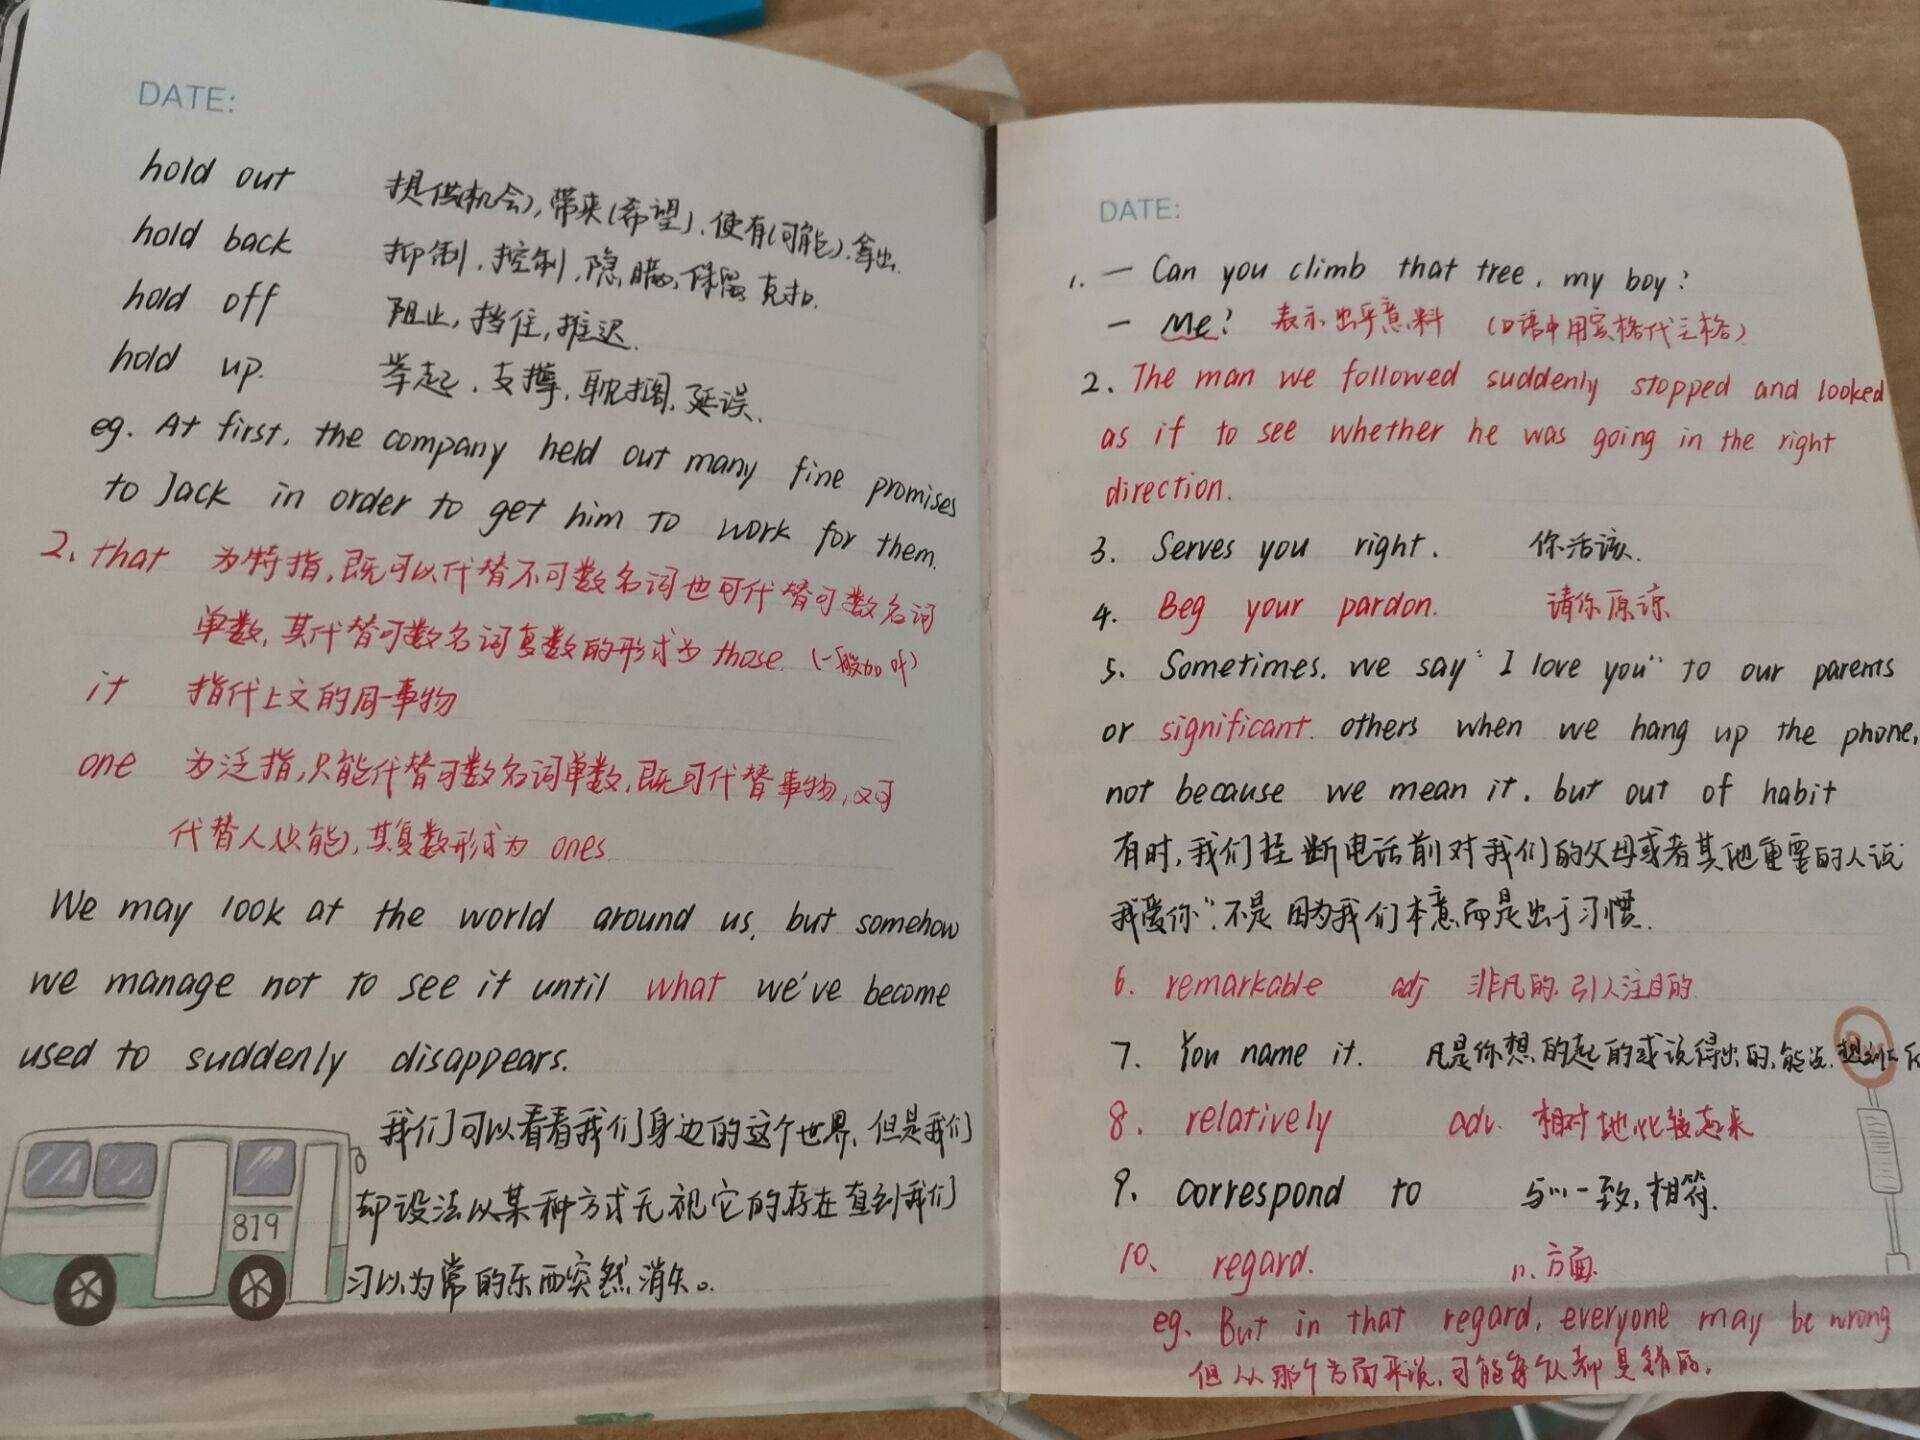 DATE:
hold out 提供(机会),带来(希望),使有(可能).拿出.
hold back 抑制,控制,隐瞒,保留,克扣.
hold off 阻止,挡住,推迟.
hold up. 举起,支撑,耽搁,延误.
eg. At first, the company held out many fine promises
to Jack in order to get him to work for them.
2. that 为特指,既可以代替不可数名词也可代替可数名词
单数,其代替可数名词复数的形式为 those. (一般加 of)
it 指代上文的同一事物
one 为泛指,只能代替可数名词单数,既可代替事物,又可
代替人(只能),其复数形式为 ones
We may look at the world around us, but somehow
we manage not to see it until what we've become
used to suddenly disappears.
我们可以看看我们身边的这个世界,但是我们
却设法以某种方式无视它的存在直到我们
习以为常的东西突然消失。
819
DATE:
1. — Can you climb that tree, my boy?
— Me? 表示出乎意料 (口语中用宾格代主格)
2. The man we followed suddenly stopped and looked
as if to see whether he was going in the right
direction.
3. Serves you right. 你活该.
4. Beg your pardon. 请你原谅
5. Sometimes, we say "I love you" to our parents
or significant others when we hang up the phone,
not because we mean it, but out of habit
有时,我们挂断电话前对我们的父母或者其他重要的人说
我爱你",不是因为我们本意而是出于习惯.
6. remarkable adj 非凡的.引人注目的
7. You name it. 凡是你想的起的或说得出的,能说.
8. relatively adv. 相对地 比较起来
9. correspond to 与…一致,相符.
10. regard. n.方面.
eg. But in that regard, everyone may be wrong
但从那个方面来说,可能每个人都是错的.